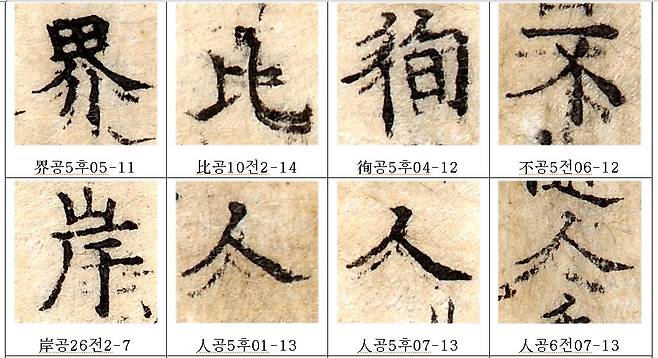 界 比 徇 不
界공5후05-11 比공10전2-14 徇공5후04-12 不공5전06-12
岸 人 人 人
岸공26전2-7 人공5후01-13 人공5후07-13 人공6전07-13